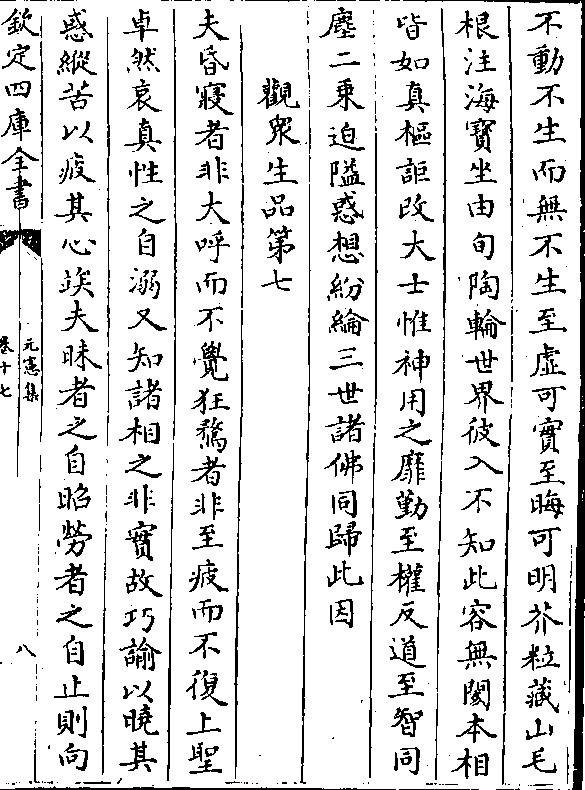 不動不生而無不生至虛可實至晦可明芥粒藏山毛
根注海寳坐由旬陶輪世界彼入不知此容無閡本相
皆如真樞詎改大士惟神用之靡勤至權反道至智同
塵二乗迫隘惑想紛綸三世諸佛同歸此因
觀衆生品第七
夫昏寢者非大呼而不覺狂騖者非至疲而不復上聖
卓然哀真性之自溺又知諸相之非實故巧諭以曉其
惑縱苦以疲其心竢夫昧者之自昭勞者之自止則向
欽定四庫全書
元憲集
卷十七
八